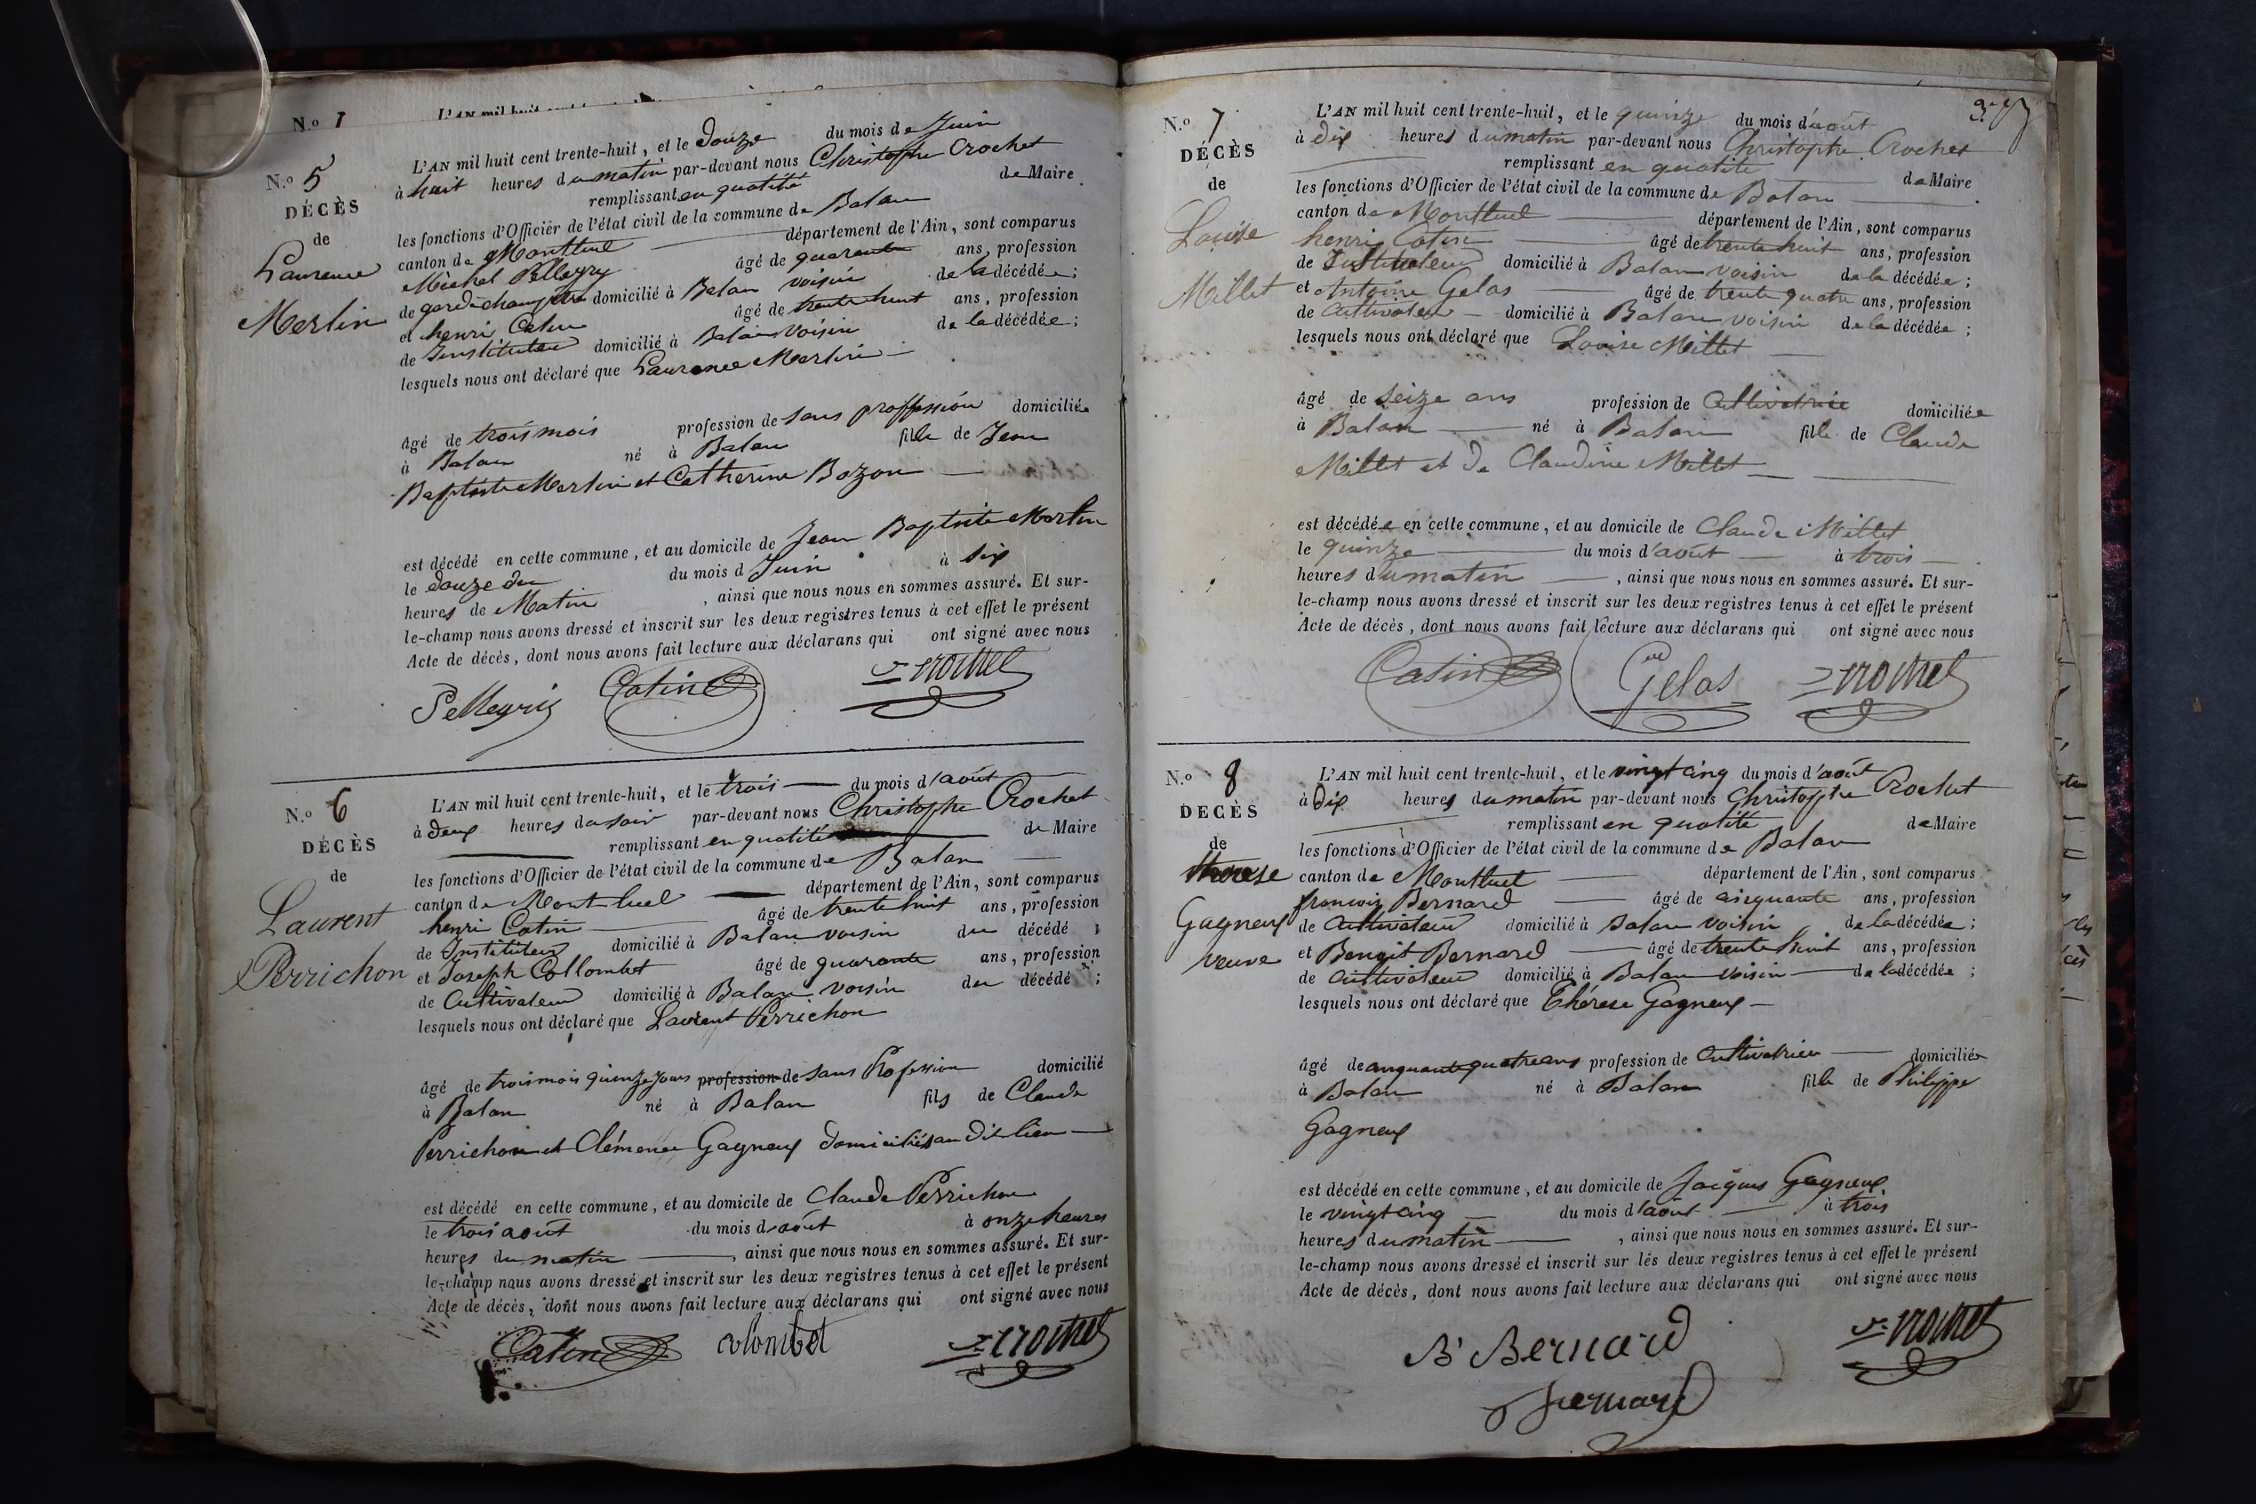 N.o 1
L'AN mil huit
N.o 5
DÉCÈS
de
Laurence
Merlin
L'AN mil huit cent trente-huit, et le douze du mois de Juin
à huit heures du matin par-devant nous Christophe Crochet
remplissant en qualité de Maire
les fonctions d'Officier de l'état civil de la commune de Balan
canton de Montluel département de l'Ain, sont comparus
Michel Pellegry âgé de quarante ans, profession
de garde champêtre domicilié à Balan voisin de la décédée;
et henri Catin âgé de trente huit ans, profession
de Instituteur domicilié à Balan voisin de la décédée;
lesquels nous ont déclaré que Laurence Merlin
âgé de trois mois profession de sans proffession domiciliée
à Balan né à Balan fille de Jean
Baptiste Merlin et Catherine Bozon
est décédé en cette commune, et au domicile de Jean Baptiste Merlin
le douze du du mois d Juin à six
heures de Matin, ainsi que nous nous en sommes assuré. Et sur-
le-champ nous avons dressé et inscrit sur les deux registres tenus à cet effet le présent
Acte de décès, dont nous avons fait lecture aux déclarans qui ont signé avec nous
Pellegrin Catin Crochet
N.o 6
DÉCÈS
de
Laurent
Perrichon
L'AN mil huit cent trente-huit, et le trois du mois d'août
à deux heures du soir par-devant nous Christophe Crochet
remplissant en qualité de Maire
les fonctions d'Officier de l'état civil de la commune de Balan
canton de Montluel département de l'Ain, sont comparus
henri Catin âgé de trente huit ans, profession
de Instituteur domicilié à Balan voisin du décédé;
et Joseph Collombet âgé de quarante ans, profession
de Cultivateur domicilié à Balan voisin du décédé;
lesquels nous ont déclaré que Laurent Perrichon
âgé de trois mois quinze jours profession de sans Profession domicilié
à Balan né à Balan fils de Claude
Perrichon et Clémence Gagneux domiciliés au dit lieu
est décédé en cette commune, et au domicile de Claude Perrichon
le trois août du mois d août à onze heures
heures du matin, ainsi que nous nous en sommes assuré. Et sur-
le-champ nous avons dressé et inscrit sur les deux registres tenus à cet effet le présent
Acte de décès, dont nous avons fait lecture aux déclarans qui ont signé avec nous
Catin colombet Crochet
N.o 7
DÉCÈS
de
Louise
Millet
L'AN mil huit cent trente-huit, et le quinze du mois d'août
à dix heures du matin par-devant nous Christophe Crochet
remplissant en qualité de Maire
les fonctions d'Officier de l'état civil de la commune de Balan
canton de Montluel département de l'Ain, sont comparus
henri Catin âgé de trente huit ans, profession
de Instituteur domicilié à Balan voisin de la décédée;
et Antoine Gelas âgé de trente quatre ans, profession
de Cultivateur domicilié à Balan voisin de la décédée;
lesquels nous ont déclaré que Louise Millet
âgé de seize ans profession de Cultivatrice domiciliée
à Balan né à Balan fille de Claude
Millet et de Claudine Millet
est décédée en cette commune, et au domicile de Claude Millet
le quinze du mois d'août à trois
heures du matin, ainsi que nous nous en sommes assuré. Et sur-
le-champ nous avons dressé et inscrit sur les deux registres tenus à cet effet le présent
Acte de décès, dont nous avons fait lecture aux déclarans qui ont signé avec nous
Catin Gelas Crochet
N.o 8
DÉCÈS
de
therese
Gagneux
veuve
L'AN mil huit cent trente-huit, et le vingt cinq du mois d'août
à dix heures du matin par-devant nous Christophe Crochet
remplissant en qualité de Maire
les fonctions d'Officier de l'état civil de la commune de Balan
canton de Montluel département de l'Ain, sont comparus
francois Bernard âgé de cinquante ans, profession
de Cultivateur domicilié à Balan voisin de la décédée;
et Benoit Bernard âgé de trente huit ans, profession
de Cultivateur domicilié à Balan voisin de la décédée;
lesquels nous ont déclaré que Thérese Gagneux
âgé de cinquante quatre ans profession de Cultivatrice domiciliée
à Balan né à Balan fille de Philippe
Gagneux
est décédé en cette commune, et au domicile de Jacques Gagneux
le vingt cinq du mois d'août à trois
heures du matin, ainsi que nous nous en sommes assuré. Et sur-
le-champ nous avons dressé et inscrit sur les deux registres tenus à cet effet le présent
Acte de décès, dont nous avons fait lecture aux déclarans qui ont signé avec nous
B Bernard Crochet
Bernard